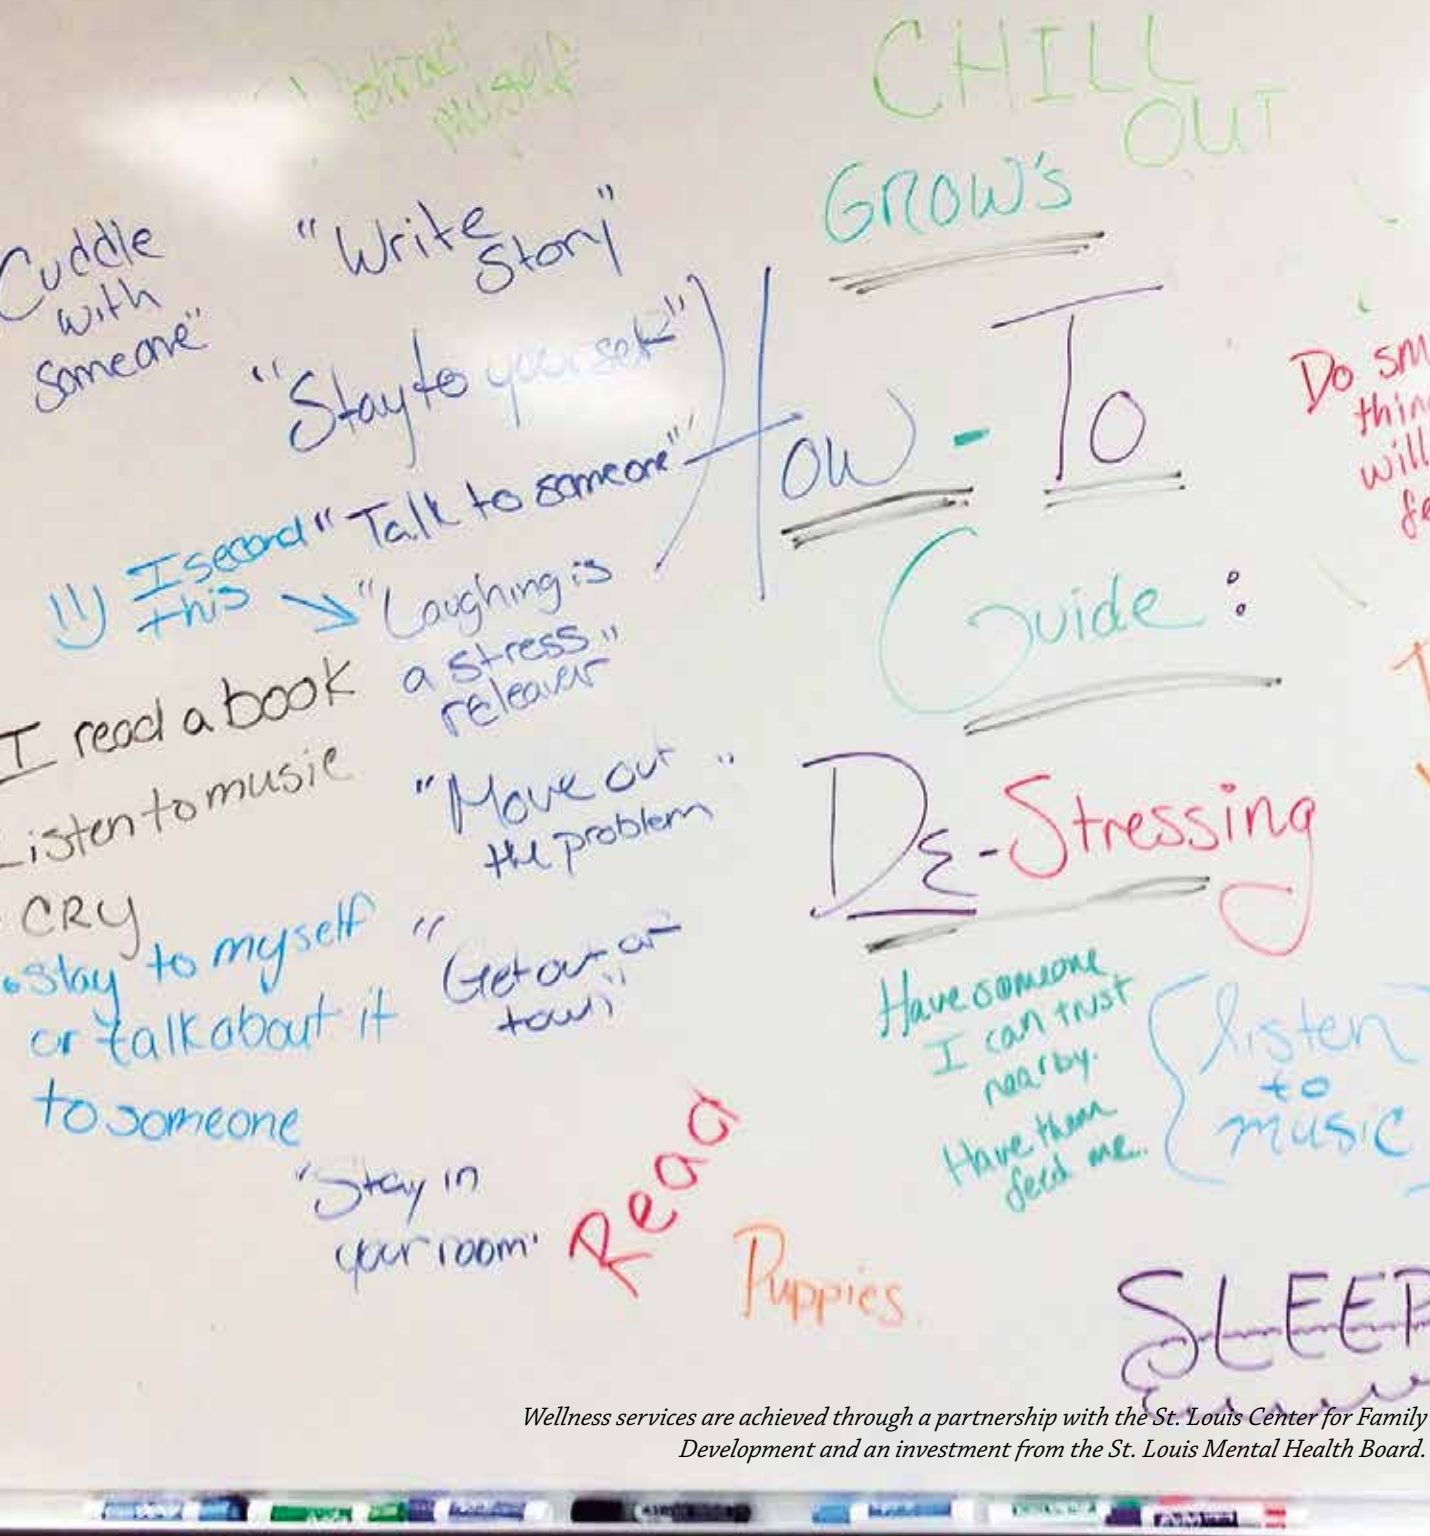 myself
CHILL
OUT
GROW'S
How - To
Guide :
De-Stressing
Cuddle
with
someone"
"Write
Story"
"Stay to yourself"
"Talk to someone"
I second
this
"Laughing is
a stress"
releaver
I read a book
Listen to music
CRY
"Move out
the problem"
• Stay to myself
or talk about it
to someone
"Get out of
town"
"Stay in
your room"
Read
Puppies
Have someone
I can trust
nearby.
Have them
feed me.
listen
to
music
Do
will
SLEEP
Wellness services are achieved through a partnership with the St. Louis Center for Family
Development and an investment from the St. Louis Mental Health Board.